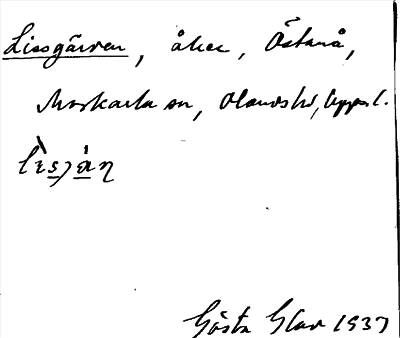 Lissgärden, åker, Östanå,
Morkarla sn, Olands hd, Uppsl.
Gösta Glav 1937